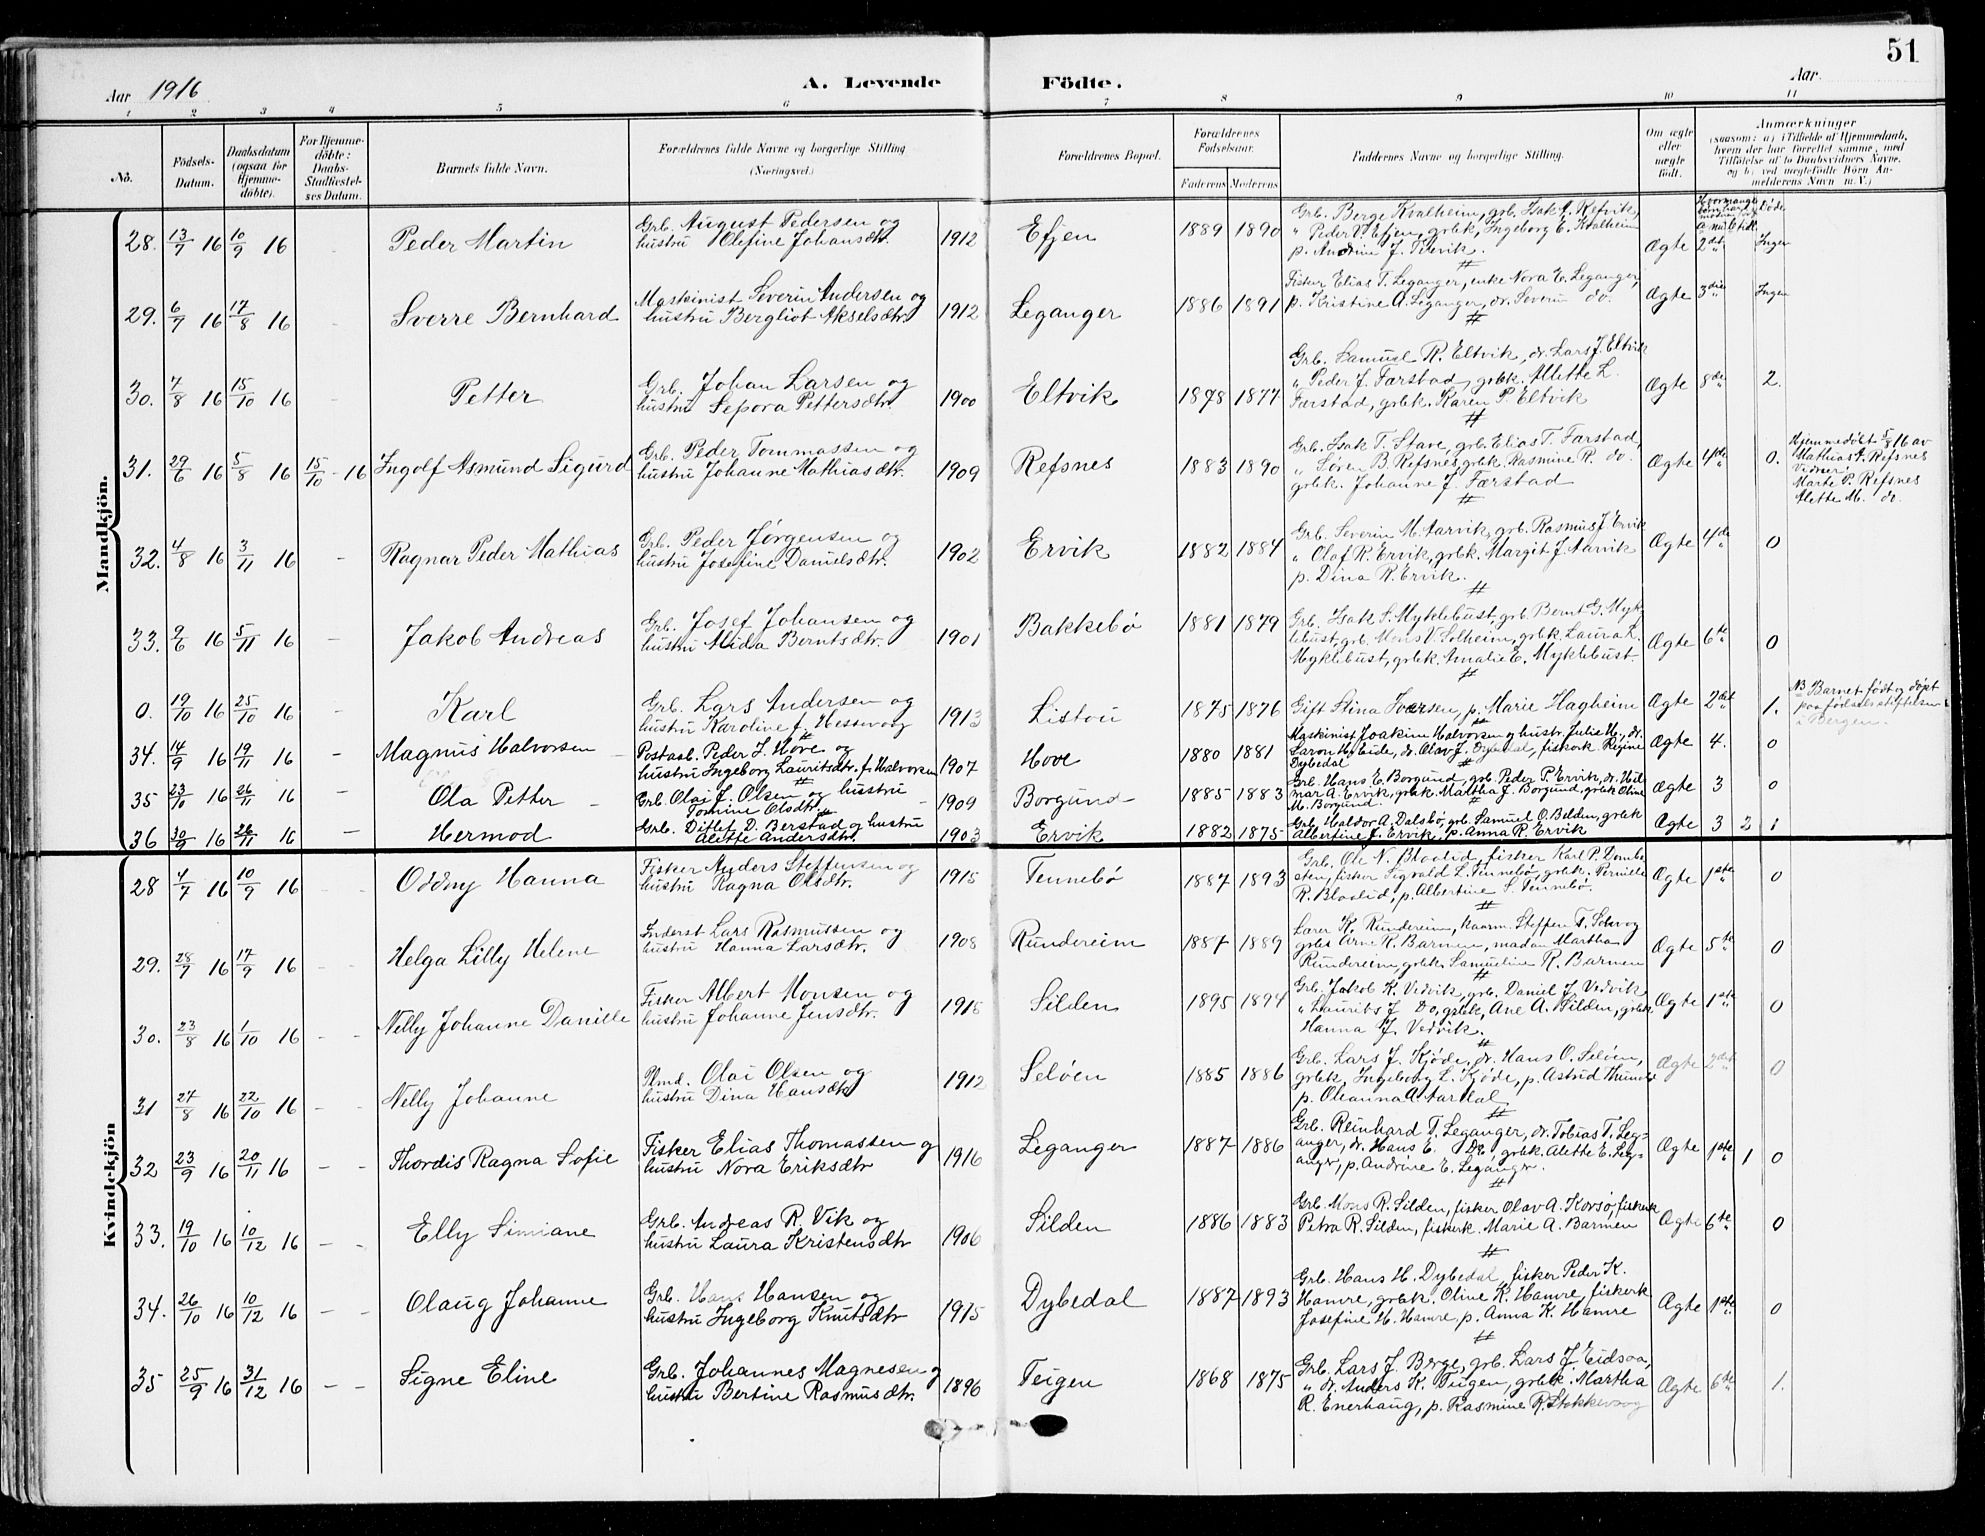 51
Aar 1916
A. Levende Födte.
Aar
1 2 3 4 5 6 7 8 9 10 11
No.
Födsels-Datum.
Daabsdatum (ogsaa for Hjemme-döbte).
For Hjemme-döbte: Daabs-Stadfæstel-ses Datum.
Barnets fulde Navn.
Forældrenes fulde Navne og borgerlige Stilling (Næringsvei.)
Forældrenes Bopæl.
Forældrenes Födselsaar.
Faderens Moderens
Faddernes Navne og borgerlige Stilling.
Om ægte eller uægte födt.
Anmærkninger
(saasom: a) i Tilfælde af Hjemmedaab,
hvem der har forrettet samme, med
Tilföielse af to Daabsvidners Navne,
og b) ved uægtefödte Börn An-
melderens Navn m. V.)
Mandkjön.
28. 13/7 16 10/9 16 Peder Martin
Grb. August Pedersen og
hustru Olefine Johansdtr. 1912 Efjen 1889 1890
Grb. Berge Kvalheim, grb. Isak A. Refvik,
" Peder V. Efjen, grbk. Ingeborg E. Kvalheim
p. Andrine J. Refvik.
Ægte 2det Ingen
29. 6/7 16 17/8 16 Sverre Bernhard
Maskinist Severin Andersen og
hustru Bergliot Akselsdtr. 1912 Leganger 1886 1891
Fisker Elias T. Leganger, enke Nora E. Leganger,
p. Kristine A. Leganger, dr. Severin do.
Ægte 3die Ingen
30. 7/8 16 15/10 16 Petter
Grb. Johan Larsen og
hustru Sepora Pettersdtr. 1900 Eltvik 1878 1877
Grb. Samuel R. Eltvik, dr. Lars J. Eltvik
" Peder J. Færstad, grbk. Alette L.
Færstad, grbk. Karen P. Eltvik
Ægte 8de 2.
31. 29/6 16 5/8 16 15/10 - 16 Ingolf Asmund Sigurd
Grb. Peder Tommassen og
hustru Johanne Mathiasdtr. 1909 Refsnes 1883 1890
Grb. Isak T. Stave, grb. Elias T. Færstad,
" Søren B. Refsnes, grbk. Rasmine R. do.
grbk. Johanne J. Færstad
Ægte 4de 0.
Hjemmedøbt 5/8 16 av
Mathias A. Refsnes
Vidner:
Marte P. Refsnes
Alette M. do.
32. 4/8 16 3/11 16 Ragnar Peder Mathias
Grb. Peder Jørgensen og
hustru Josefine Danielsdtr. 1902 Ervik 1882 1884
Grb. Severin M. Aarvik, grb. Rasmus J. Ervik
" Olaf R. Ervik, grbk. Margit J. Aarvik
p. Dina R. Ervik.
Ægte 4de 0
33. 9/6 16 5/11 16 Jakob Andreas
Grb. Josef Johansen og
hustru Alida Berntsdtr. 1901 Bakkebö 1881 1879
Grb. Isak S. Myklebust, grb. Bernt G. Myk-
lebust, grb. Mons V. Solheim, grbk. Laura L.
Myklebust, grbk. Amalie E. Myklebust.
Ægte 6te 0
0. 19/10 16 25/10 16 Karl
Grb. Lars Andersen og
hustru Karoline f. Hestevog 1913 Listou 1875 1876
Gift Stina Iversen, p. Marie Hagheim
Ægte 2det 1.
NB Barnet født og døpt
paa fødselsstiftelsen
i Bergen.
34. 14/9 16 19/11 16 Magnus Halvorsen
Postaab. Peder J. Hove og
hustru Ingeborg Lauritsdtr. f. Halvorsen 1907 Hove 1880 1881
Maskinist Joakim Halvorsen og hustr. Julie H., dr.
Laron H. Eide, dr. Olav J. Dybedal, fiskerk Regine
Dybedal
Ægte 4. 0
35 23/10 16 26/11 16 Ola Petter
Grb. Olai J. Olsen og hustru
Tomine Olsdtr. 1909 Borgund 1885 1883
Grb. Hans E. Borgund, grb. Peder P. Ervik, dr. Hil-
mar A. Ervik, grbk. Martha J. Borgund, grbk. Oline
M. Borgund.
Ægte 3 0
36 30/9 16 26/11 16 Hermod
Grb. Ditlef D. Berstad og hustru
Alette Andersdtr. 1903 Ervik 1882 1875
Grb. Haldor A. Dalsbø, grb. Samuel O. Belden, grbk
Albertine J. Ervik, p. Anna R. Ervik
Ægte 3 2 1
Kvindekjön
28 4/7 16 10/9 16 Oddny Hanna
Fisker Anders Steffensen og
hustru Ragna Olsdtr. 1915 Tennebö 1887 1893
Grb. Ole N. Blaalid, fisker Karl P. Dombe-
sten, fisker Sigvald L. Tennebø, grbk. Pernille
R. Blaalid, p. Albertine S. Tennebø.
Ægte 1ste 0
29. 28/7 16 17/9 16 Helga Lilly Helene
Inderst Lars Rasmussen og
hustru Hanna Larsdtr. 1908 Rundereim 1887 1889
Lærer K. Rundereim, Steffen T.
Arne R. Barmen, madam Martha
Rundereim, grbk. Samueline R. Barmen
Ægte 5te 0
30. 23/8 16 1/10 16 Nelly Johanne Danille
Fisker Albert Monsen og
hustru Johanne Jensdtr. 1915 Silden 1895 1894
Grb. Jakob K. Vedvik, grb. Daniel J. Vedvik
" Laurits J. Do, grbk. Ane A. Silden, grbk.
Hanna J. Vedvik.
Ægte 1ste 0
31 27/8 16 22/10 16 Nelly Johanne
Plmd. Olai Olsen og
hustru Dina Hansdtr. 1912 Selöen 1885 1886
Grb. Lars J. Kjøde, dr. Hans O. Seløen,
grbk. Ingeborg L. Kjøde, p. Astrid Thunold
p. Oleanna A. Aardal
Ægte 2det 0
32 23/9 16 20/11 16 Thordis Ragna Sofie
Fisker Elias Thomassen og
hustru Nora Eriksdtr 1916 Leganger 1887 1886
Grb. Reinhard T. Leganger, dr. Tobias T. Leg-
anger, dr. Hans E. Do. grbk. Alette E. Leg-
anger, p. Andrine E. Leganger.
Ægte 1ste 1 0
33. 19/10 16 10/12 16 Elly Simiane
Grb. Andreas R. Vik og
hustru Laura Kristensdtr 1906 Silden 1886 1883
Grb. Mons R. Silden, fisker Olav A. Korsø, fiskerk
Petra R. Silden, fiskerk. Marie A. Barmen
Ægte 6te 0
34. 26/10 16 10/12 16 Olaug Johanne
Grb. Hans Hansen og
hustru Ingeborg Knutsdtr 1915 Dybedal 1887 1893
Grb. Hans H. Dybedal, fisker Peder K.
Hamre, grbk. Oline K. Hamre, fiskerk
Josefine H. Hamre, p. Anna K. Hamre
Ægte 1ste 0
35 25/9 16 31/12 16 Signe Eline
Grb. Johannes Magnesen og
hustru Bertine Rasmusdtr. 1896 Teigen 1868 1875
Grb. Lars J. Berge, grb. Lars J. Eidsaa,
" dr. Anders K. Teigen, grbk. Martha
R. Enerhaug, p. Rasmine R. Stokkevaag
Ægte 6te 1.